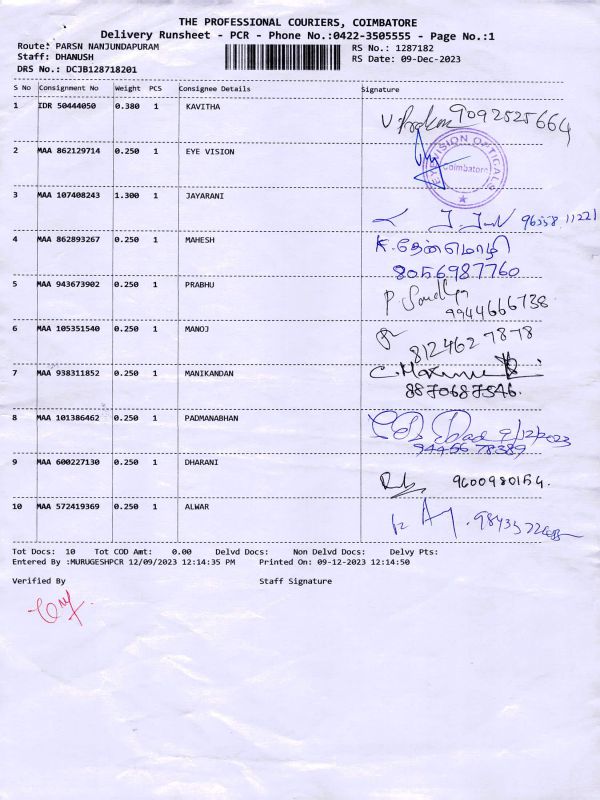 THE PROFESSIONAL COURIERS, COIMBATORE
Delivery Runsheet - PCR - Phone No.:0422-3505555 - Page No.:1
Route: PARSN NANJUNDAPURAM RS No.: 1287182
Staff: DHANUSH RS Date: 09-Dec-2023
DRS No.: DCJB128718201
S No Consignment No Weight PCS Consignee Details Signature
1 IDR 50444050 0.380 1 KAVITHA
9092525664
2 MAA 862129714 0.250 1 EYE VISION
EYE VISION OPTICALS
Coimbatore
3 MAA 107408243 1.300 1 JAYARANI
96558 11221
4 MAA 862893267 0.250 1 MAHESH K. தேன்மொழி
8056987760
5 MAA 943673902 0.250 1 PRABHU P Sandhya
9944666738
6 MAA 105351540 0.250 1 MANOJ
812462 7878
7 MAA 938311852 0.250 1 MANIKANDAN
8870687546.
8 MAA 101386462 0.250 1 PADMANABHAN 9/12/2023
94456 78389
9 MAA 600227130 0.250 1 DHARANI
9600980154.
10 MAA 572419369 0.250 1 ALWAR
Tot Docs: 10 Tot COD Amt: 0.00 Delvd Docs: Non Delvd Docs: Delvy Pts:
Entered By :MURUGESHPCR 12/09/2023 12:14:35 PM Printed On: 09-12-2023 12:14:50
Verified By Staff Signature